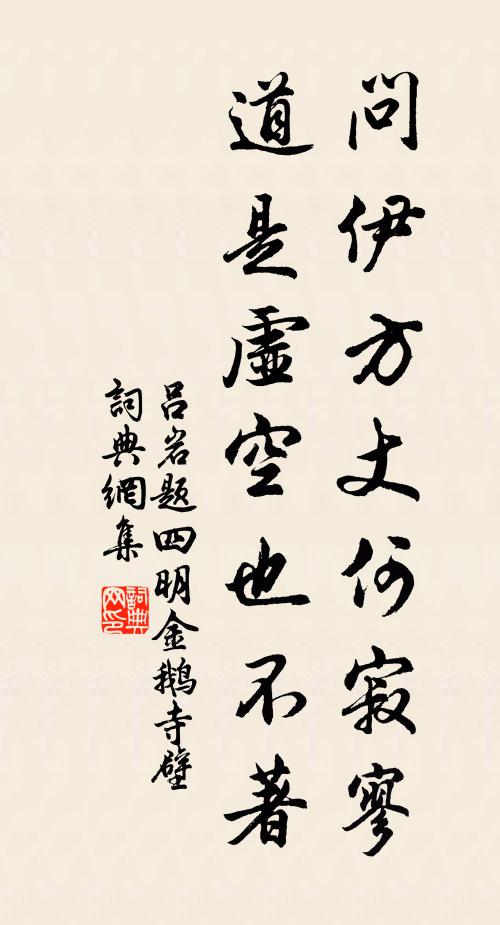 問伊方丈何寂寥
道是虛空也不著
吕岩题四明金鹅寺壁
詞典網集
詞典网印